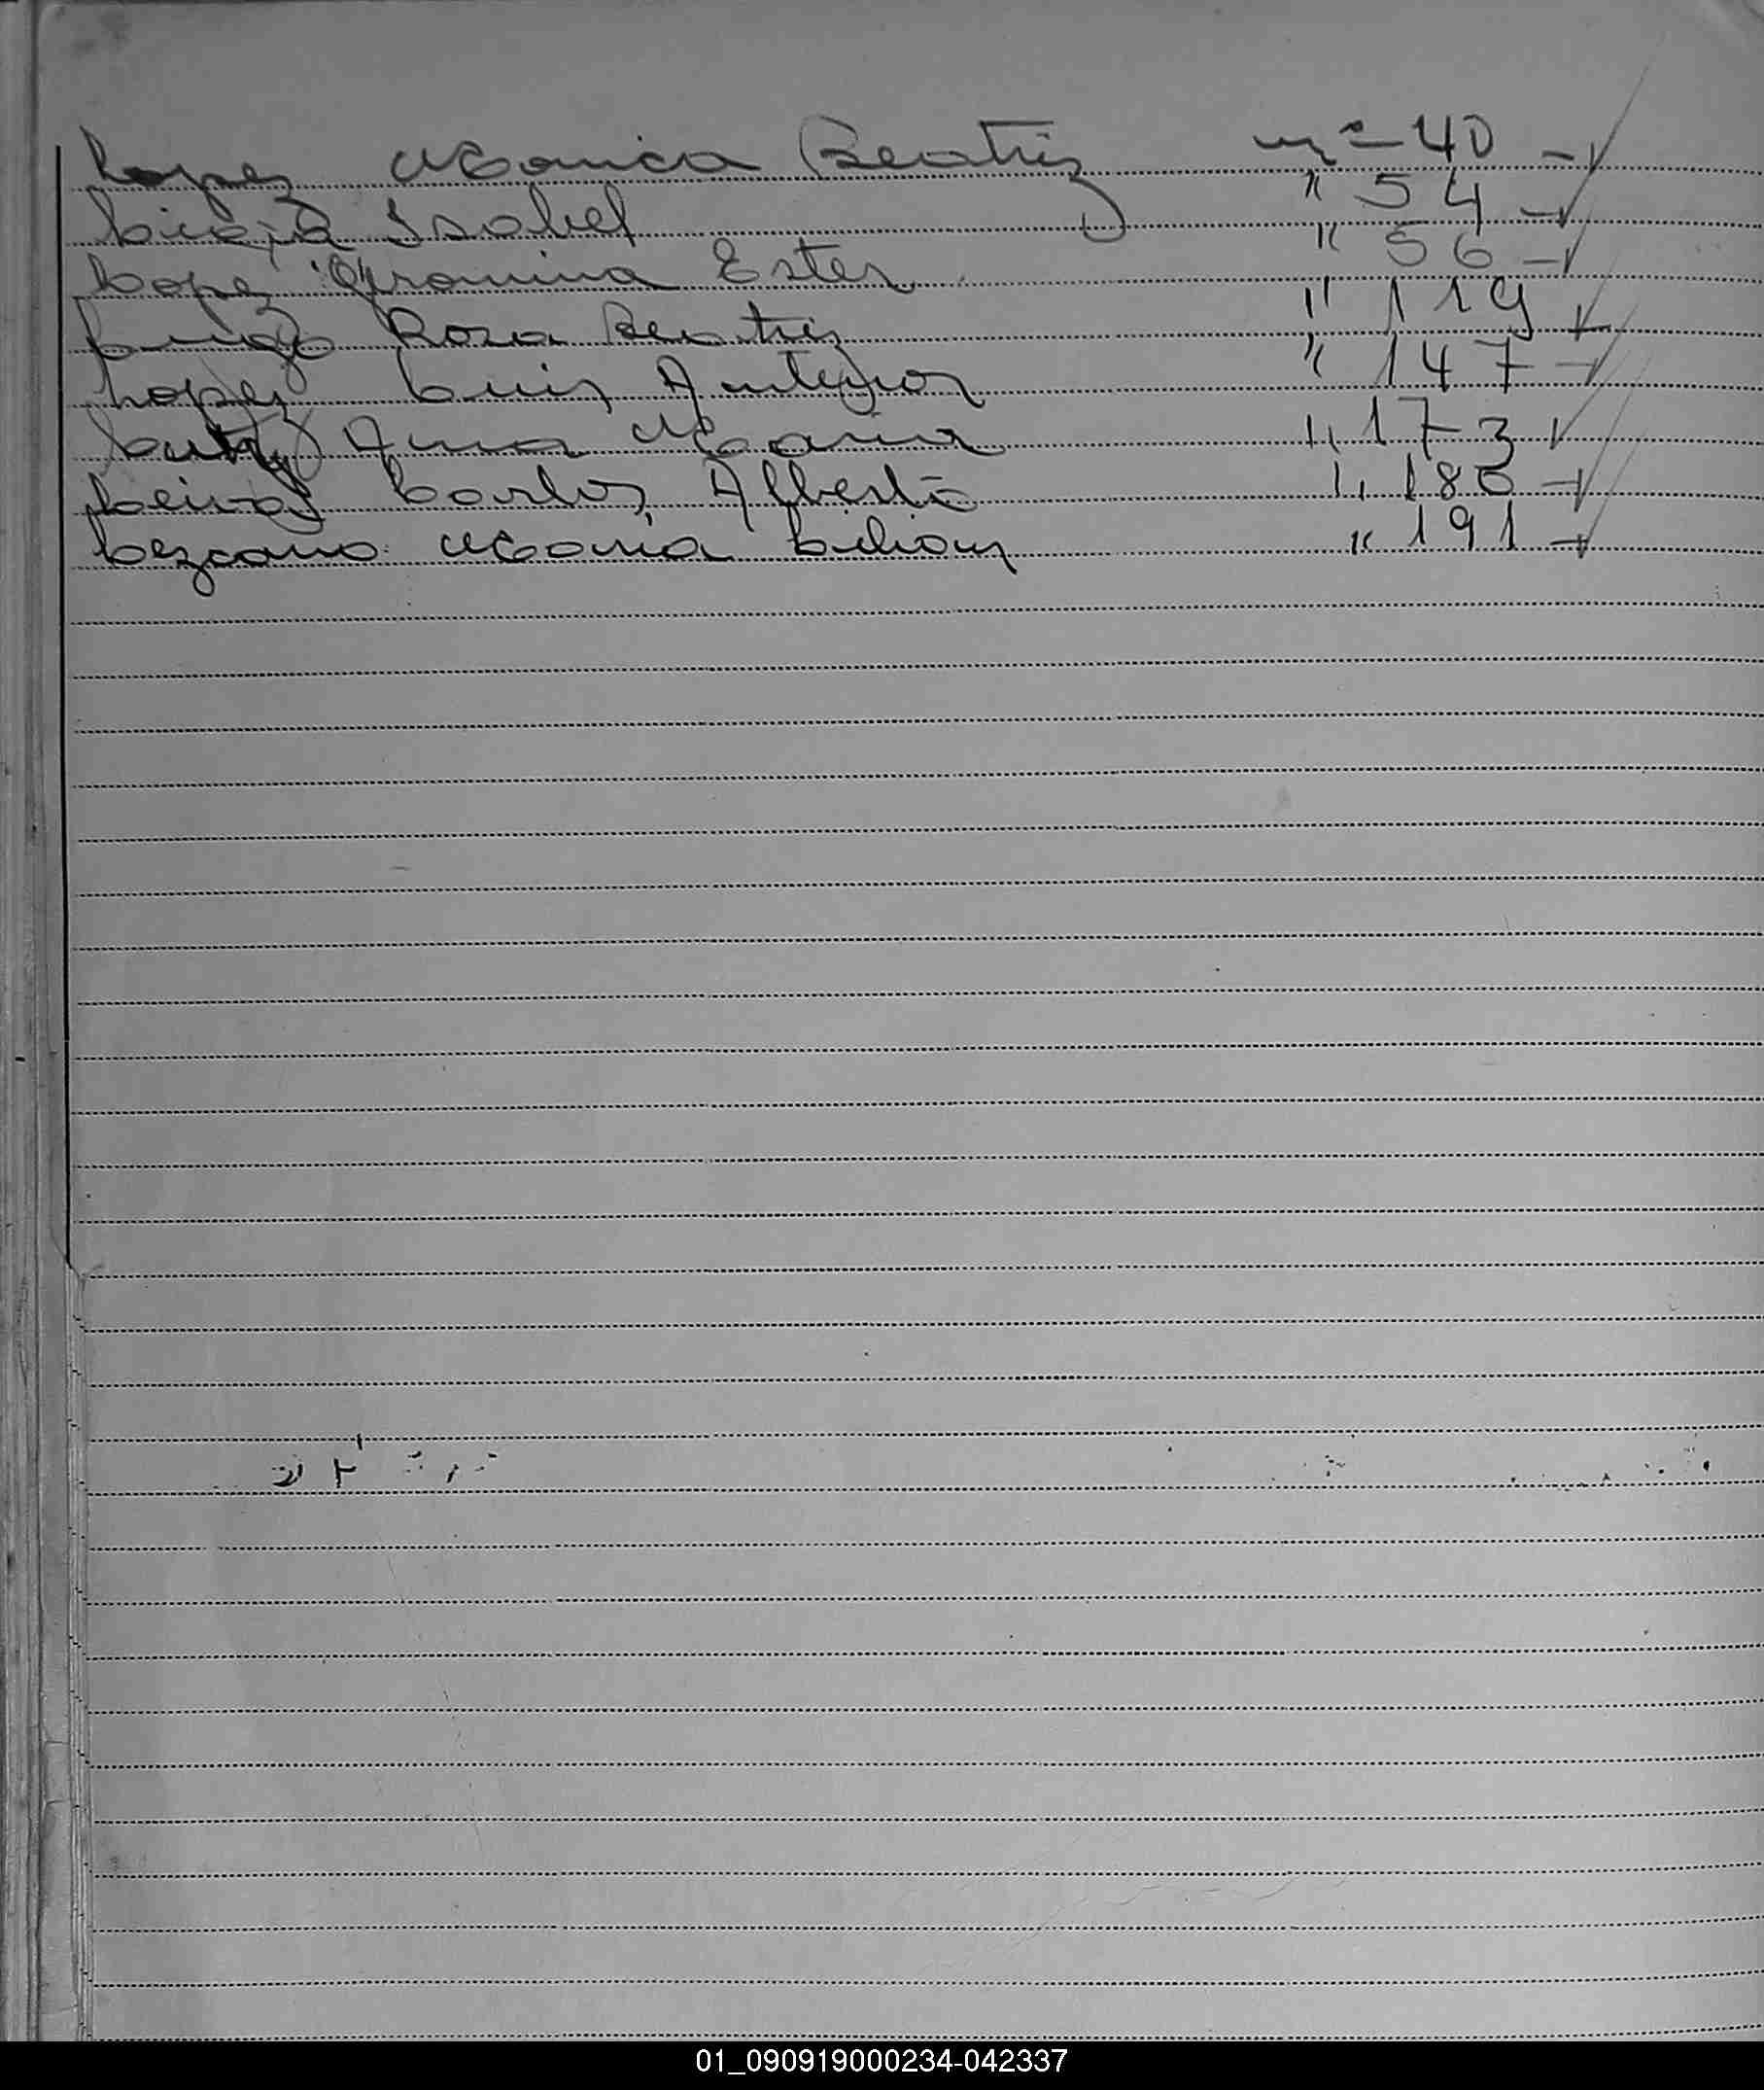 Lopez Monica Beatriz nº 40
Isabel " 54
Lopez Geronima Ester " 56
Rosa Beatriz " 119
Lopez Luis Antenor " 147
Ana Maria " 173
Leiva Carlos Alberto " 180
Lezcano Maria Lilian " 191
01_090919000234-042337